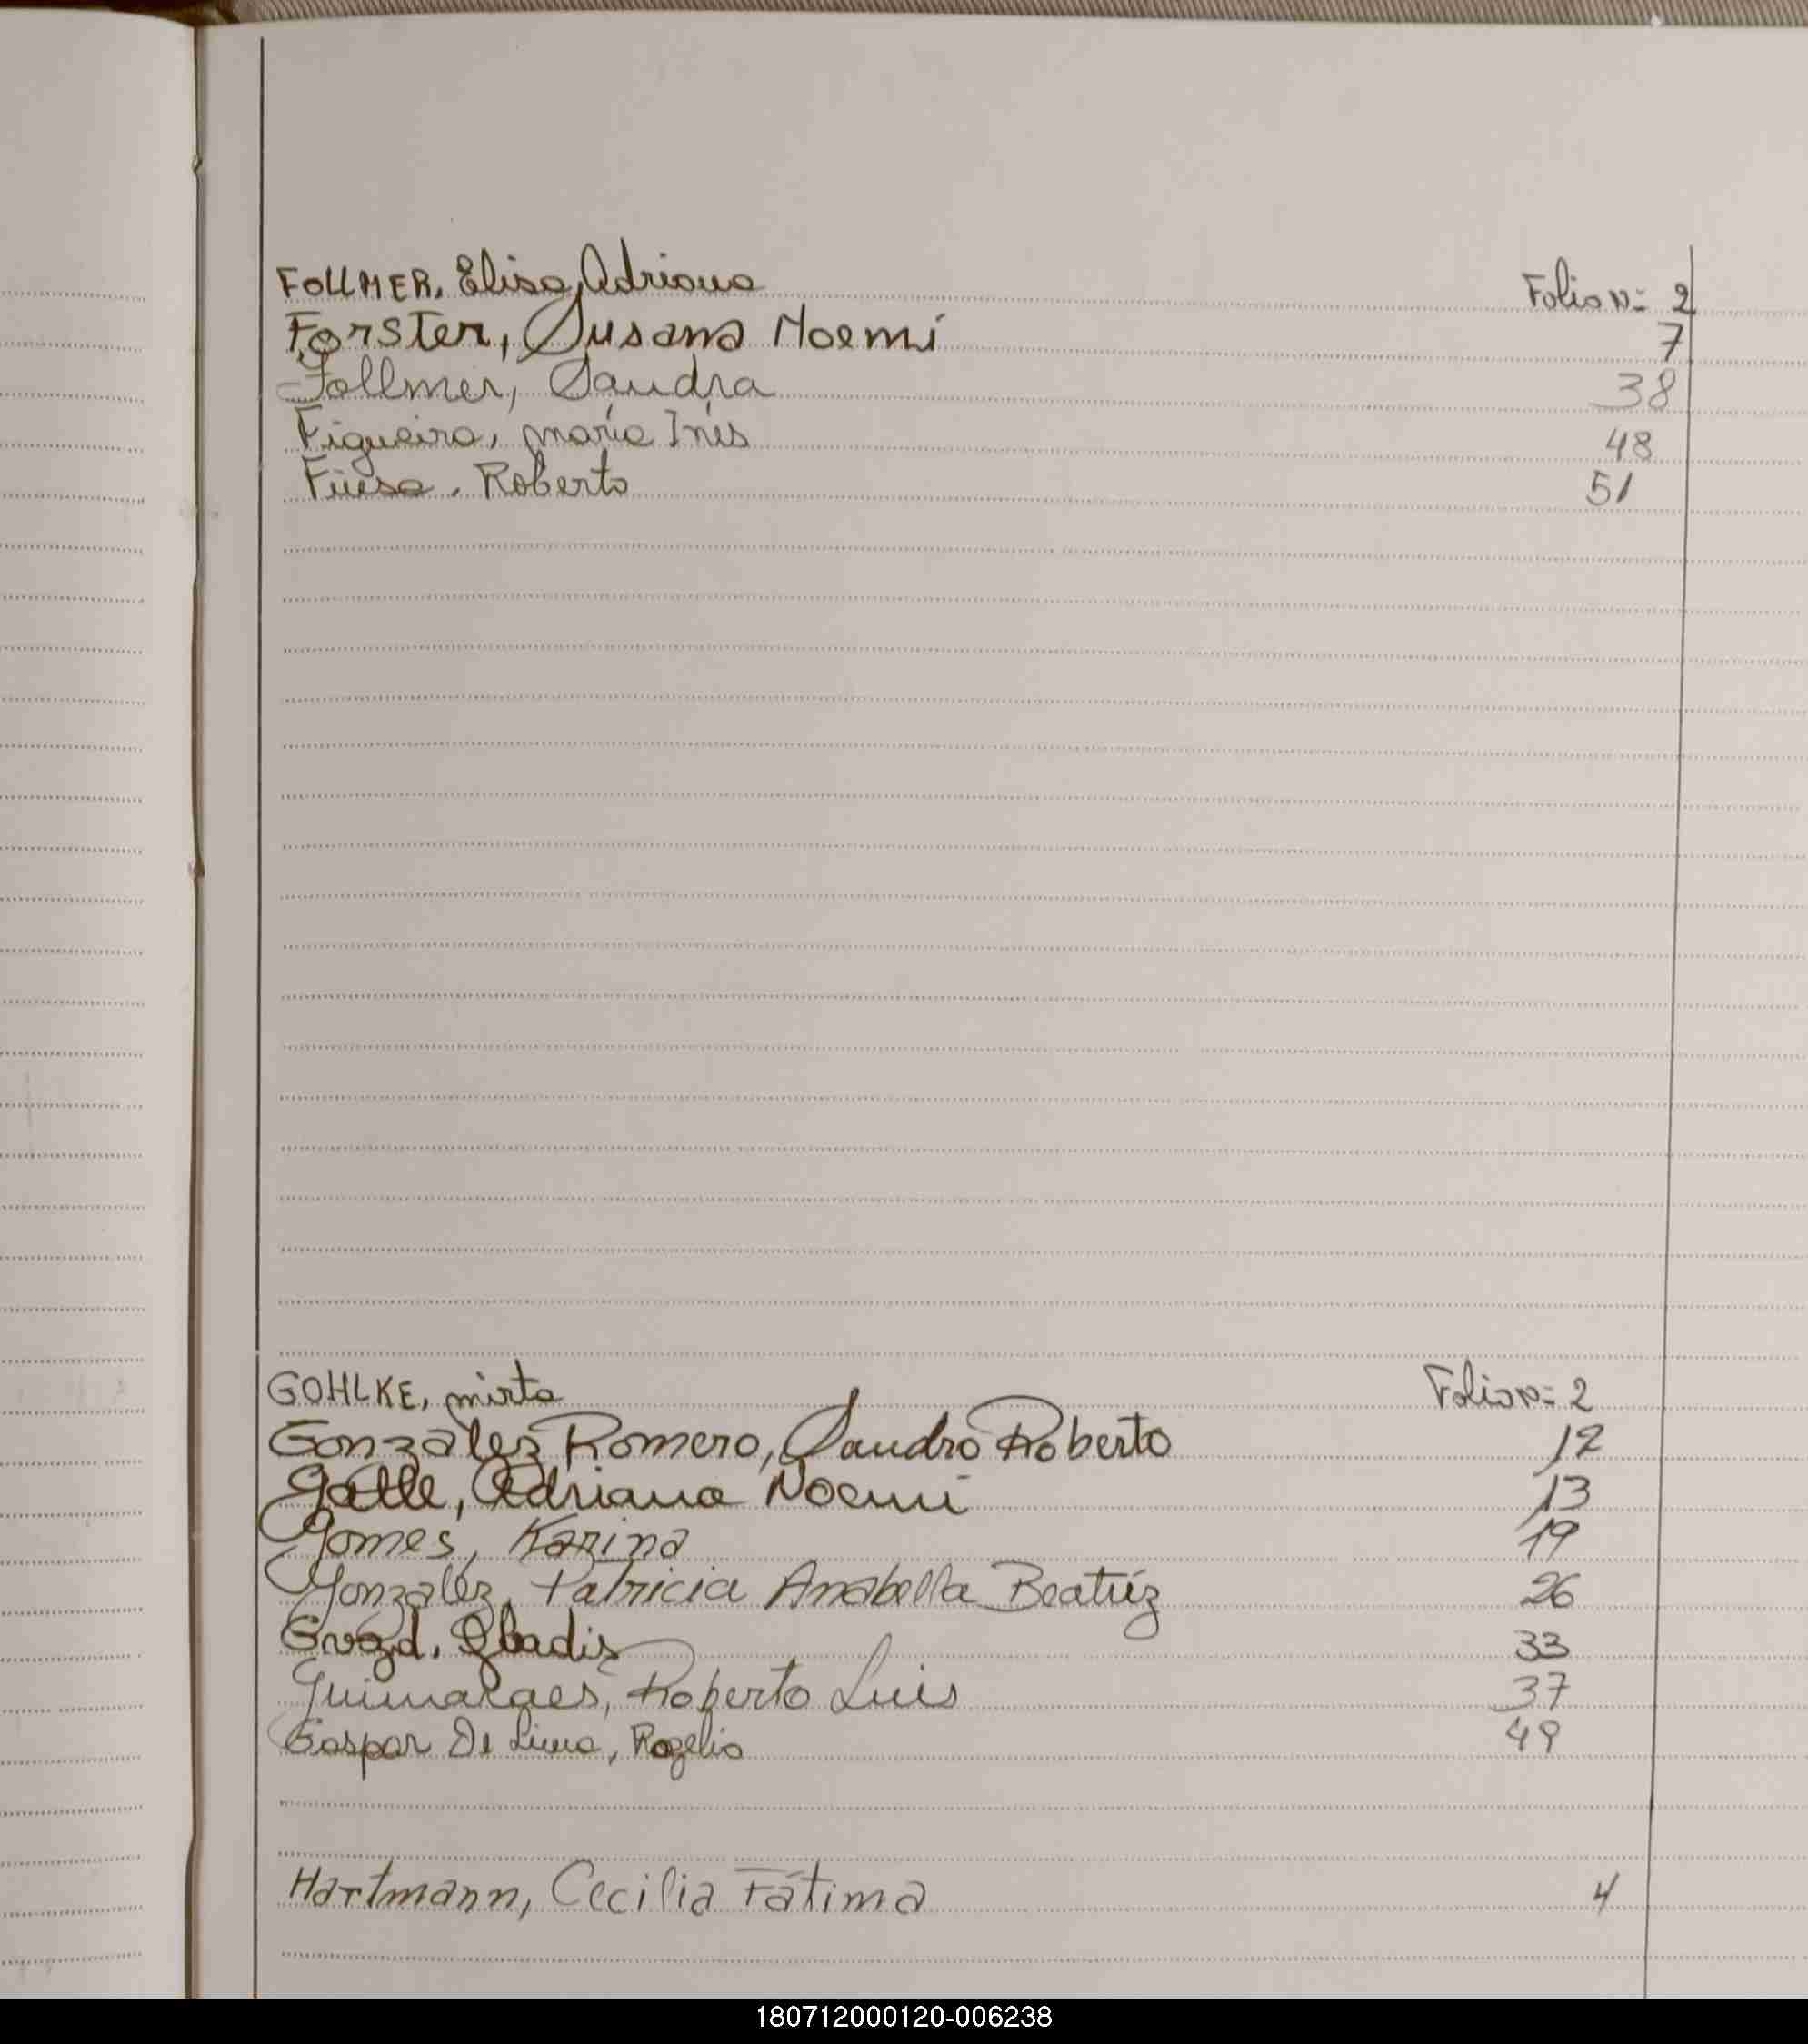 FOLLMER, Elisa Adriana Folio N= 2
Forster, Susana Noemi 7
Follmer, Sandra 38
Figueira, maria Inés 48
Roberto 51
GOHLKE, mirta Folio N= 2
Gonzàlez Romero, Sandro Roberto 12
Galle, Adriana Noemi 13
Gomes, Karina 19
Gonzaléz, Patricia Anabella Beatriz 26
Gladis 33
Guimaraes, Roberto Luis 37
Gaspar De Lima, Rogelio 49
Hartmann, Cecilia Fátima 4
180712000120-006238